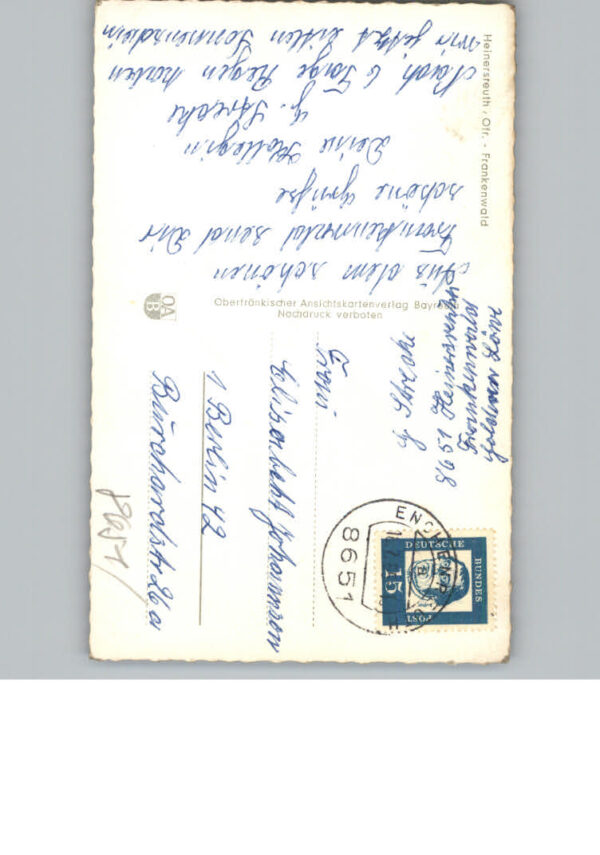 Heinersreuth, Ofr. - Frankenwald
Aus dem schönen
Frankenwald send Dir
schöne Grüße
Deine Kollegin
G. Strache
Nach 6 Tage Regen haben
wir jetzt Sonnenschein
Oberfränkischer Ansichtskartenverlag Bayreuth
Nachdruck verboten
OA
B
8651 Heinersreuth
Frankenwald
Frau
Elisabeth Johannson
1 Berlin 42
Burchardstr. 26a
8651
DEUTSCHE
BUNDES
POST
15
8651